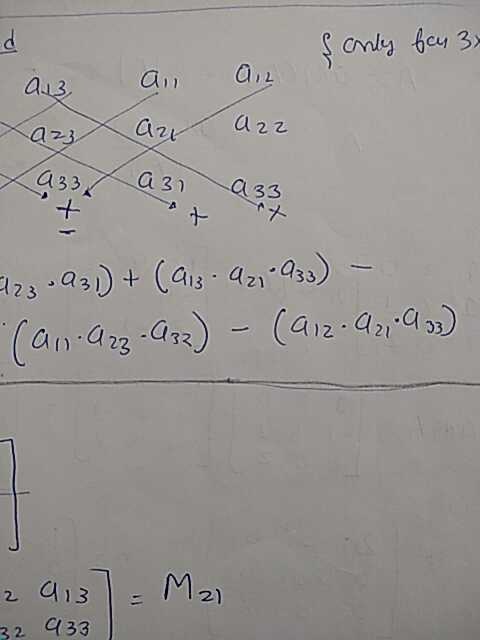 d { only for 3x
a13 a11 a12
a23 a21 a22
a33 a31 a33
+ + +
−
a23 · a31) + (a13 · a21 · a33) −
(a11 · a23 · a32) − (a12 · a21 · a33)
2 a13 ] = M21
32 a33